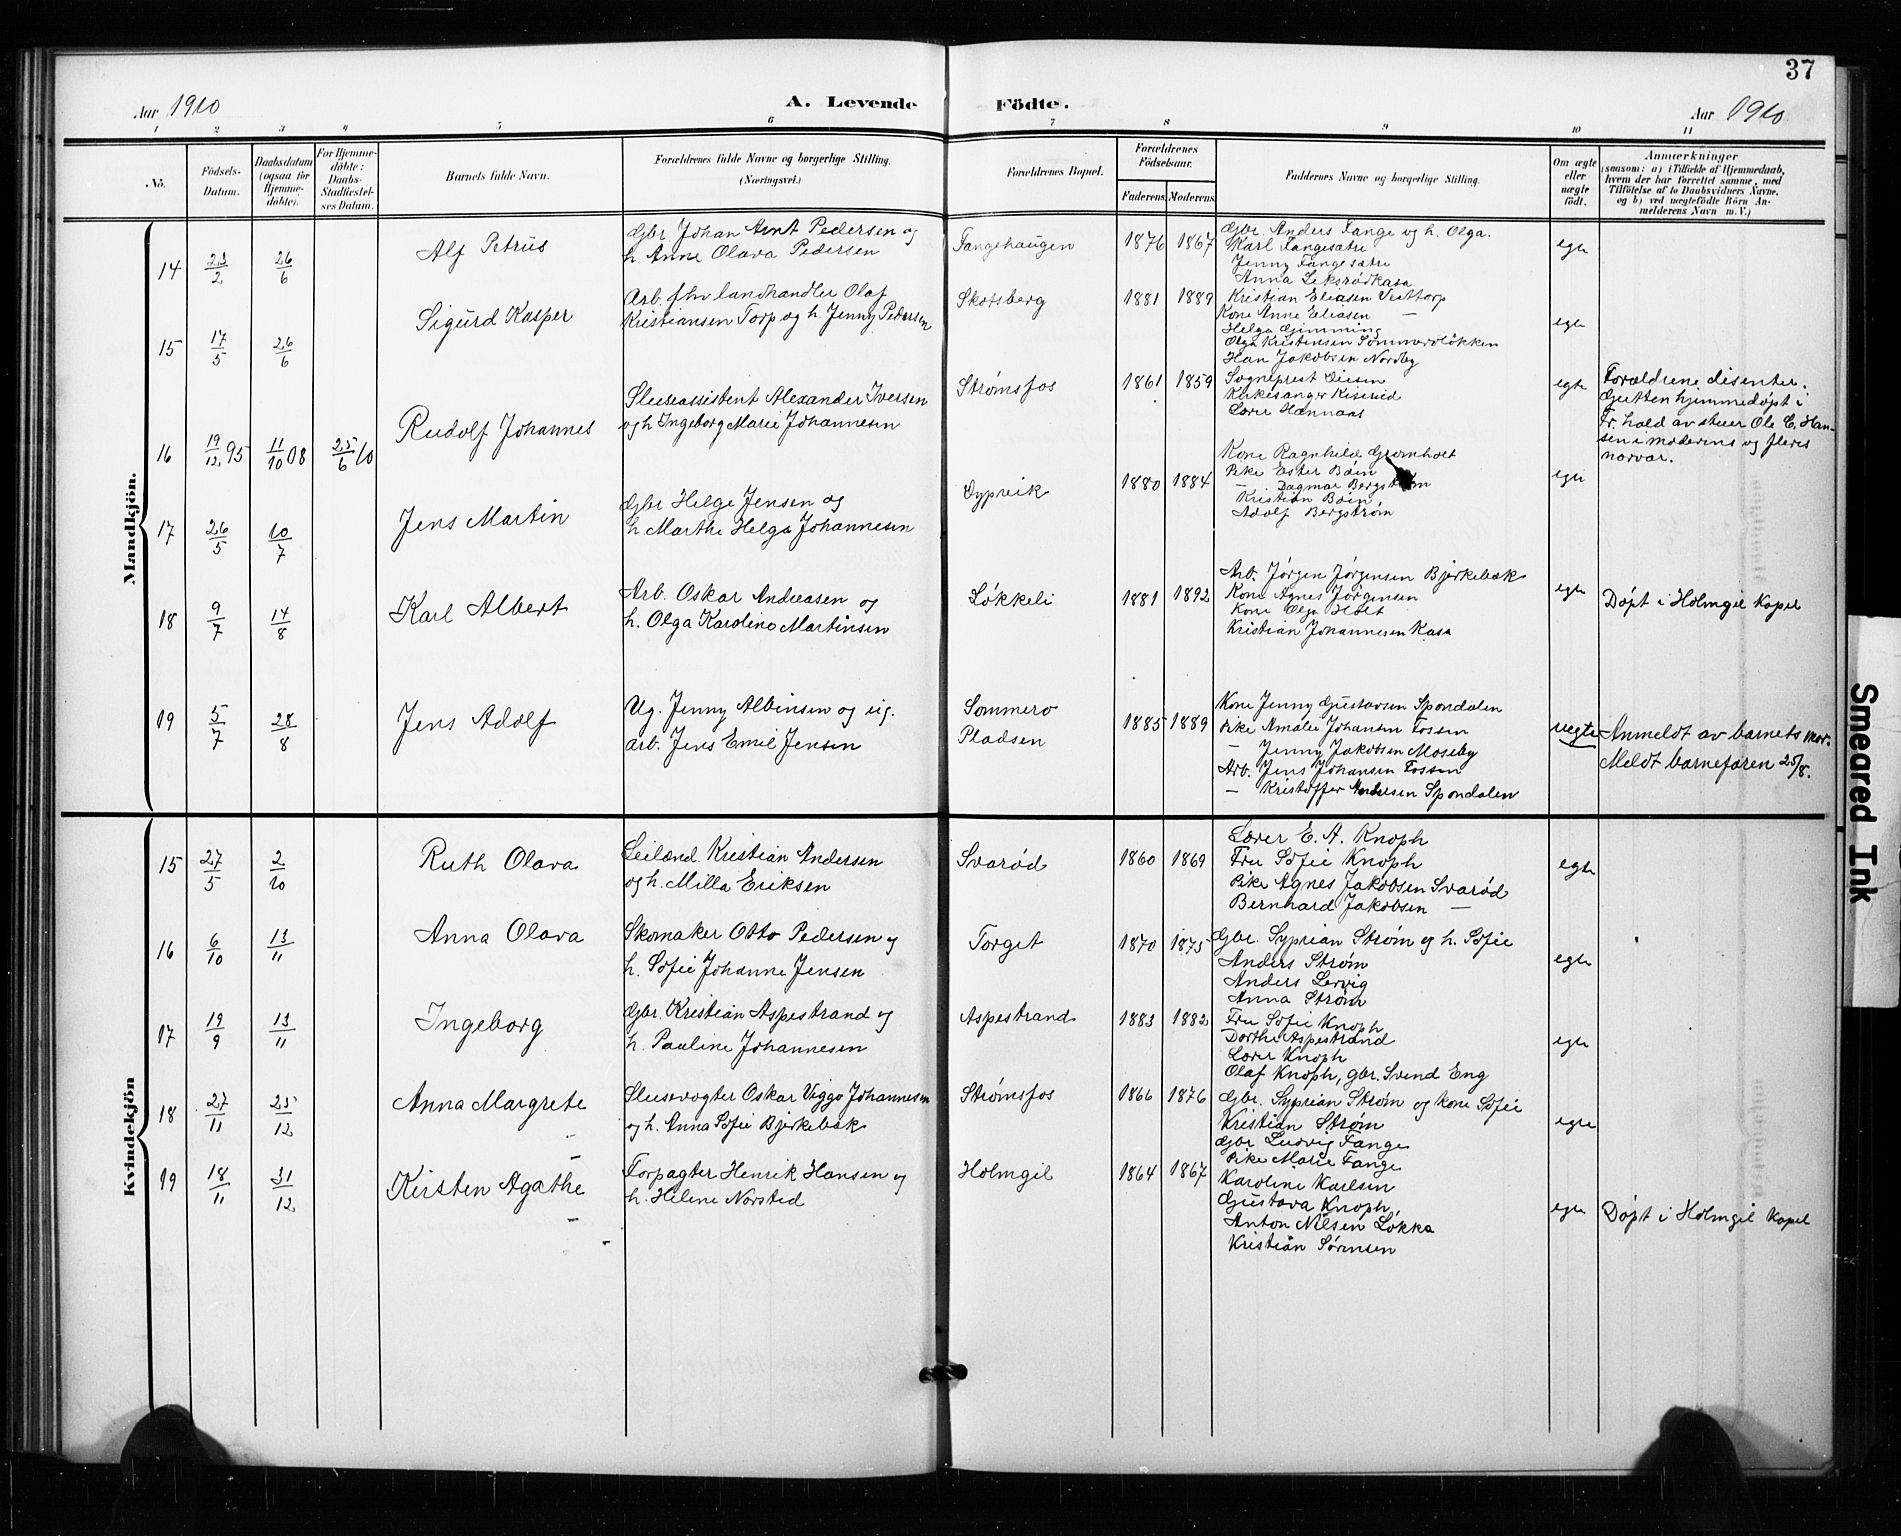 37
Aar 1910
A. Levende Födte.
Aar 1910
1 2 3 4 5 6 7 8 9 10 11
No.
Födsels-Datum.
Daabsdatum (ogsaa for Hjemme-döbte).
For Hjemme-döbte: Daabs-Stadfæstel-ses Datum.
Barnets fulde Navn.
Forældrenes fulde Navne og borgerlige Stilling. (Næringsvei.)
Forældrenes Bopæl.
Forældrenes Födselsaar.
Faderens. Moderens.
Faddernes Navne og borgerlige Stilling.
Om ægte eller uægte födt.
Anmærkninger
(saasom: a) i Tilfælde af Hjemmedaab, hvem der har forrettet samme, med Tilföielse af to Daabsvidners Navne, og b) ved uægtefödte Börn Anmelderens Navn m. V.)
Mandkjön.
14 23/2 26/6 Alf Petrus
Gbr Johan Arnt Pedersen og
h. Anne Olava Pedersen
Fangehaugen 1876 1867
Gbr. Anders Fange og h. Olga.
Karl Fangesætre
Jenny Fangesætre
Anna Leksrødkasa
egte
15 17/5 26/6 Sigurd Kasper
Arb. fhv landhandler Olaf
Kristiansen Torp og h. Jenny Pedersen
Skotsberg 1881 1889
Kristian Eliasen Vesttorp
Kone Anne Eliasen —
Helga Gimming
Olga Kristensen Sommerdløkken
Han Jakobsen Nordby
egte
16 19/12 95 11/10 08 25/6 10 Rudolf Johannes
Sluseassistent Alexander Iversen
og h Ingeborg Marie Johannesen
Strømsfos 1861 1859
Sogneprest Diesen
Kirkesanger Kiserud
Lærer Hannaas
egte
Forældrene disenter.
Gutten hjemmedøpt i
Fr. hald av stuer Ole C. Han-
sen i moderens og fleres
nærvær.
17 26/5 10/7 Jens Martin
Gbr Helge Jensen og
h Marthe Helga Johannesen
Dypvik 1880 1884
Kone Ragnhild Gromholt
Pike Ester Bøin
— Dagmar Bergstrøm
Kristian Bøin
Adolf Bergstrøm
egte
18 9/7 14/8 Karl Albert
Arb. Oskar Andreasen og
h. Olga Karoline Martinsen
Løkkeli 1881 1892
Arb. Jørgen Jørgensen Bjerkebæk
Kone Agnes Jørgensen
Kone Olga Holt
Kristian Johannesen Kasa
egte
Døpt i Holmgil Kapel
19 5/7 28/8 Jens Adolf
Ug. Jenny Albinsen og ug.
arb. Jens Emil Jensen
Sommero
Pladsen
1885 1889
Kone Jenny Gustavsen Spondalen
Pike Amalie Johansen Fossen
— Jenny Jakobsen Moseby
Arb. Jens Johansen Fossen
— Kristoffer Andersen Spondalen
uegte
Anmeldt av barnets mor.
Meldt barnefaren 25/8.
Kvindekjön
15 27/5 2/10 Ruth Olava
Leilænd. Kristian Andersen
og h. Milla Eriksen
Svarød 1860 1869
Lærer E. A. Knoph
Fru Sofie Knoph
Pike Agnes Jakobsen Svarød
Bernhard Jakobsen —
egte
16 6/10 13/11 Anna Olava
Skomaker Otto Pedersen og
h. Sofie Johanne Jensen
Torget 1870 1875
Gbr. Syprian Strøm og h. Sofie
Anders Strøm
Anders Lervig
Anna Strøm
egte
17 19/9 13/11 Ingeborg
Gbr. Kristian Aspestrand og
h. Pauline Johannesen
Aspestrand 1883 1882
Fru Sofie Knoph
Dorthe Aspestrand
Lærer Knoph
Olaf Knoph, gbr. Svend Eng
egte
18 27/11 25/12 Anna Margrete
Slusevogter Oskar Viggo Johannesen
og h. Anna Sofie Bjerkebæk
Strømsfos 1866 1876
Gbr. Syprian Strøm og kone Sofie
Kristian Strøm
Gbr Ludvig Fange
Pike Marie Fange
egte
19 18/11 31/12 Kirsten Agathe
Forpagter Henrik Hansen og
h. Helene Norsted
Holmgil 1864 1867
Karoline Karlsen
Gustava Knoph
Anton Nilsen Løkka
Kristian Sørensen
egte
Døpt i Holmgil Kapel
Smeared Ink